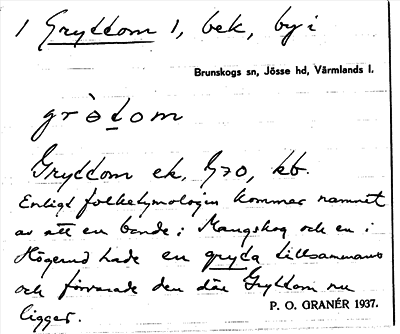 1 Gryttom 1, bek, by i
Brunskogs sn, Jösse hd, Värmlands l.
grò̱tom
Gryttom ek, G70, kb.
Enligt folketymologin kommer namnet
av att en bonde i Mangskog och en i
Högerud hade en gryta tillsammans
och förvarade den där Gryttom nu
ligger.
P. O. GRANÉR 1937.